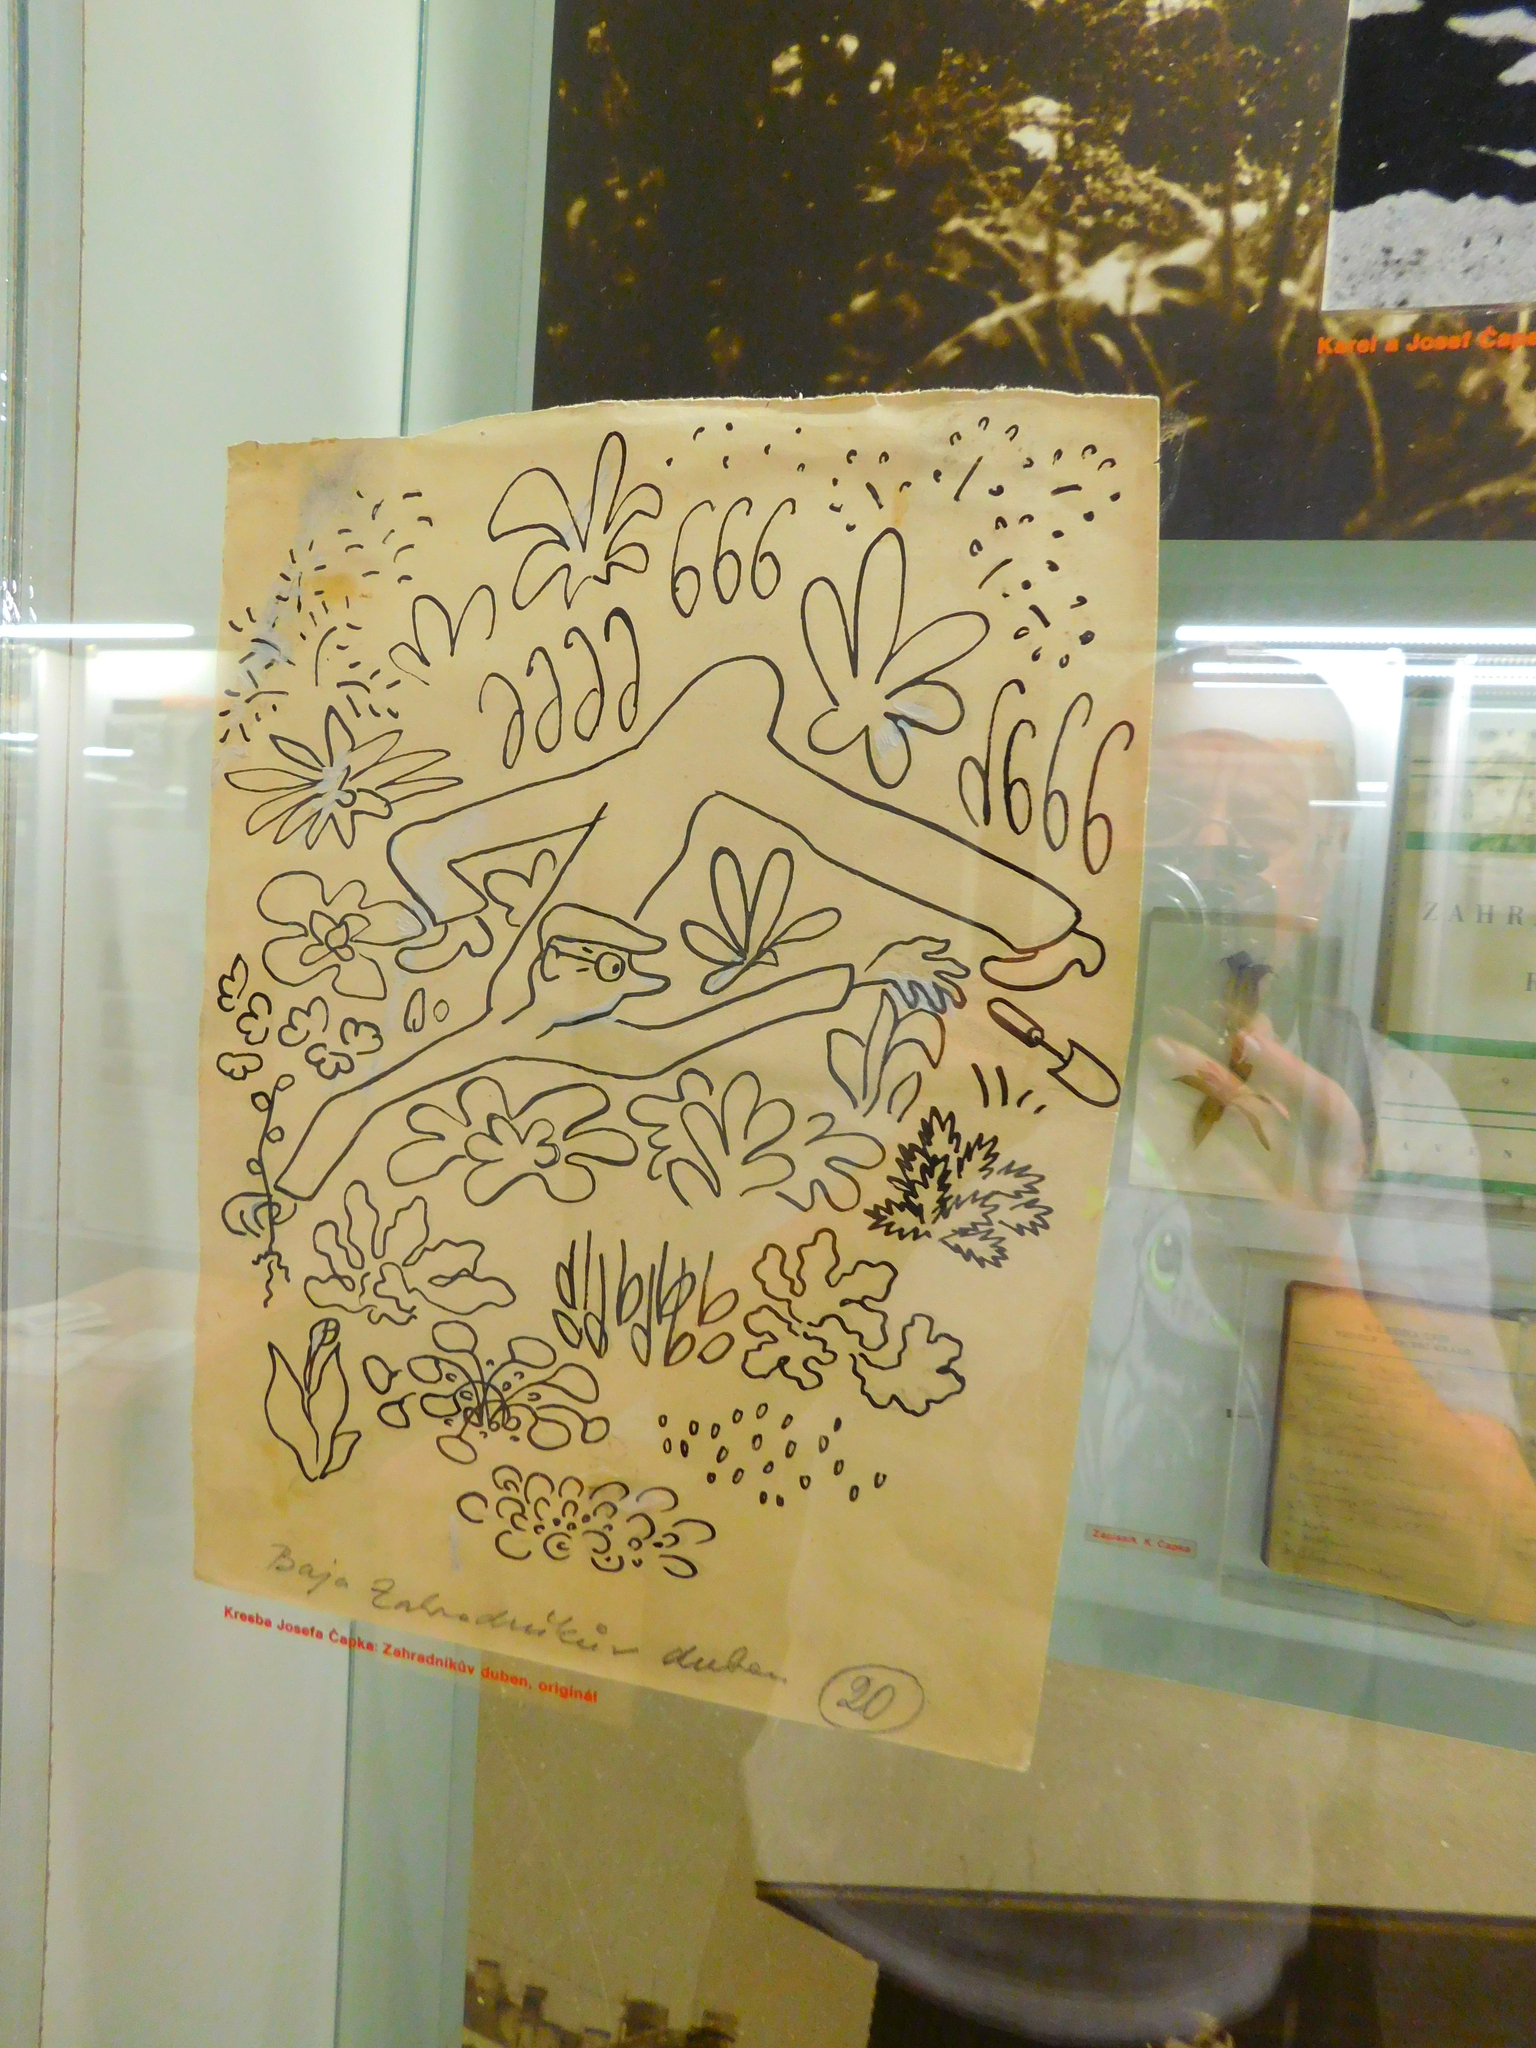 Karel a Josef Čape
ZAHR
Baja Zahradníkův duben
20
Kresba Josefa Čapka: Zahradníkův duben, originál
Zápisník K. Čapka